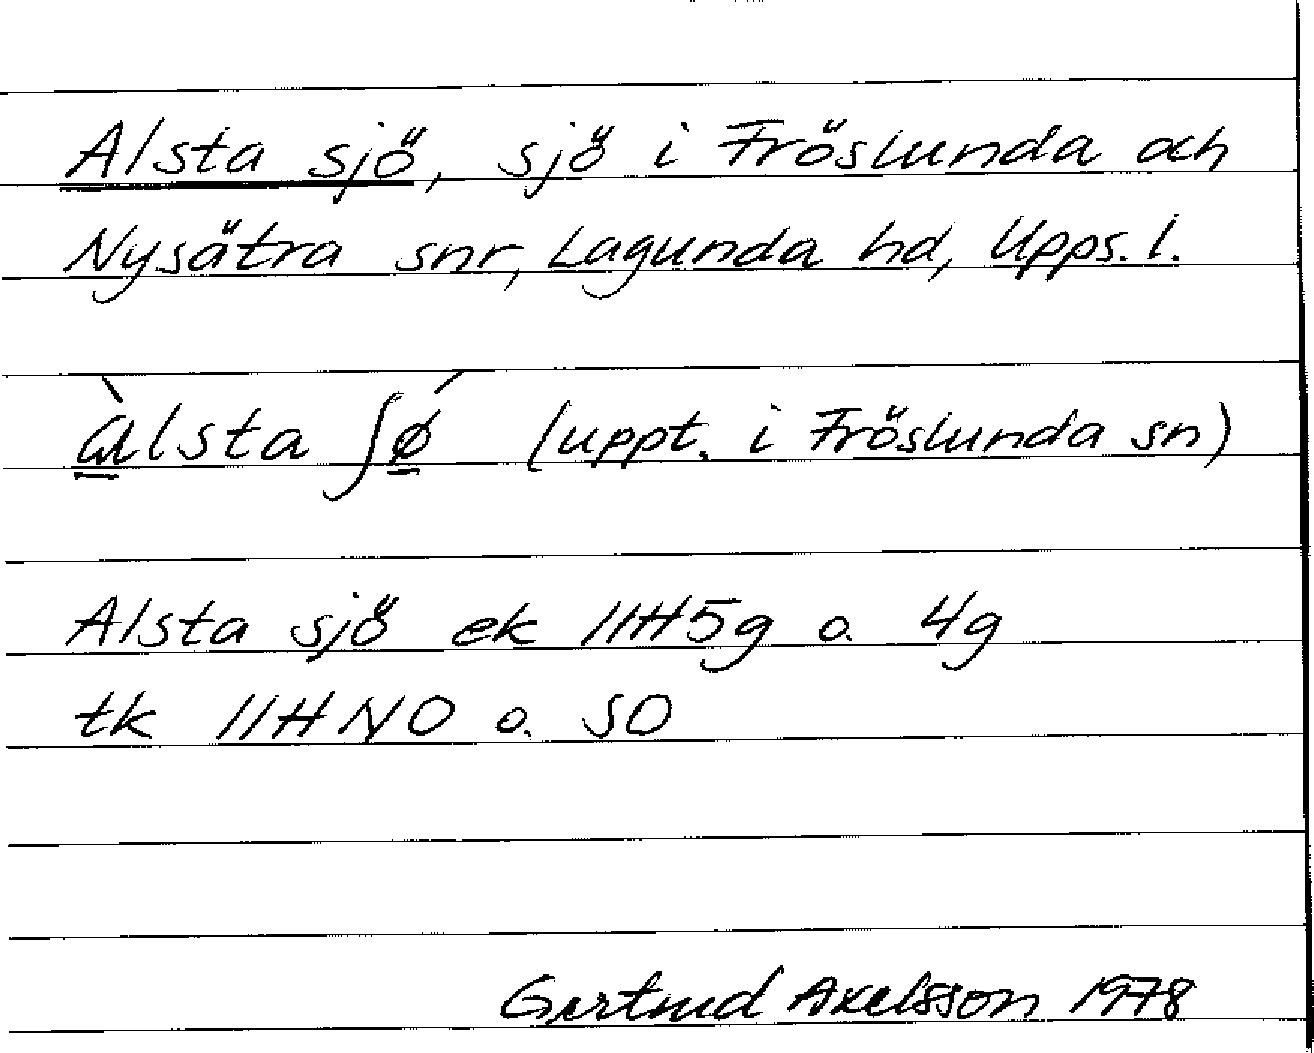 Alsta sjö, sjö i Fröslunda och
Nysätra snr, Lagunda hd, Upps. l.
ɑ̀lsta ʃǿ (uppt. i Fröslunda sn)
Alsta sjö ek 11H5g o. 4g
tk 11H NO o. SO
Gertrud Axelsson 1978